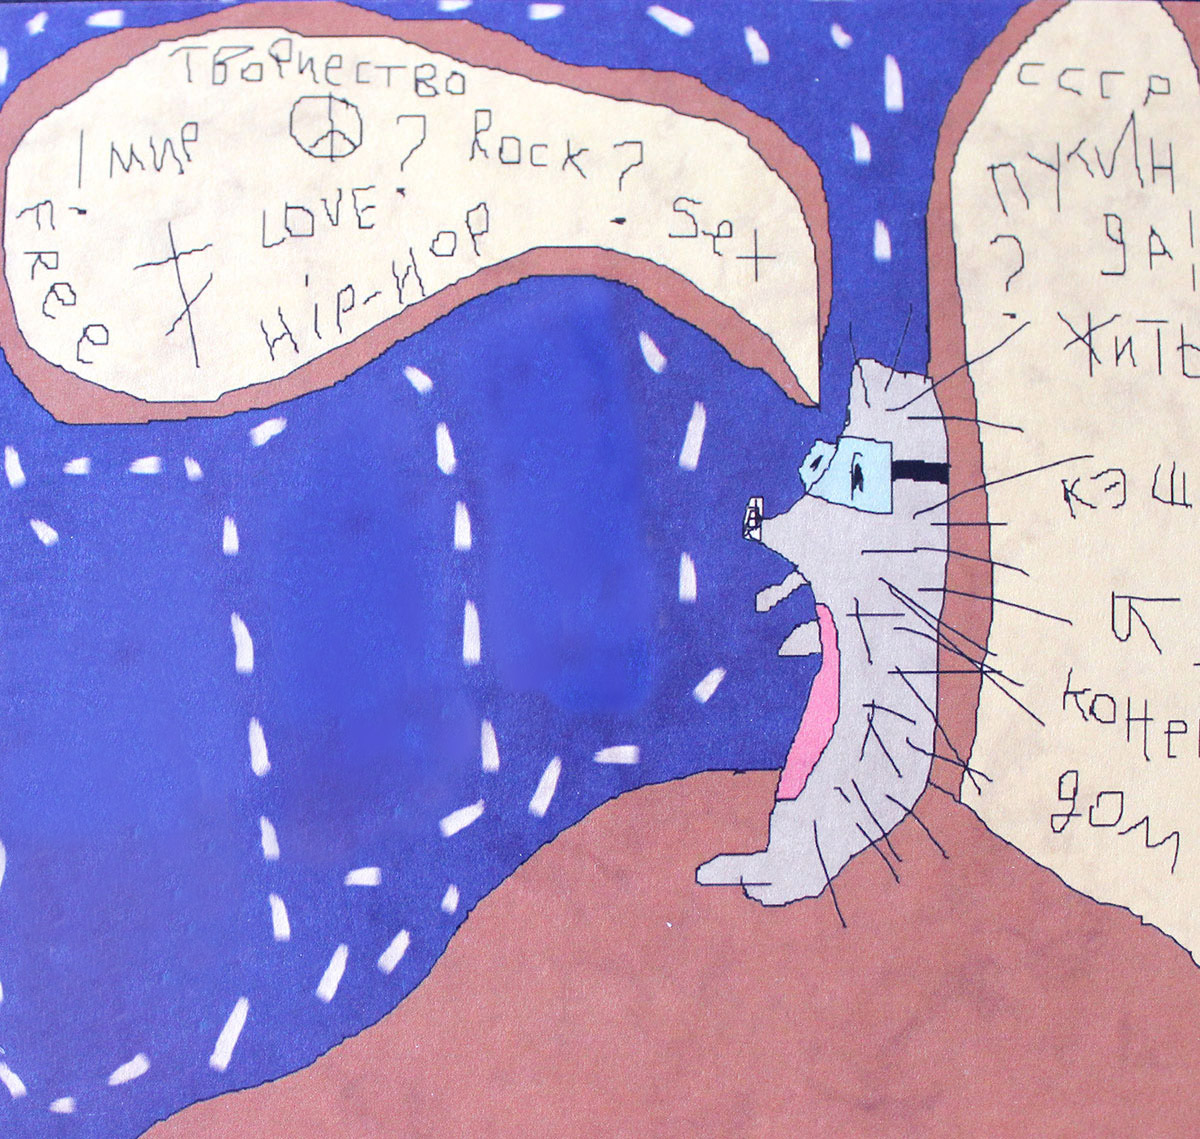 ТВОРЧЕСТВО
! МИР ? ROCK ?
LOVE
FREE
HiP-HOP
Set
СССР
ПУКИН
? ДА!
ЖИТЬ
КЭШ
КОНЕ
ДОМ